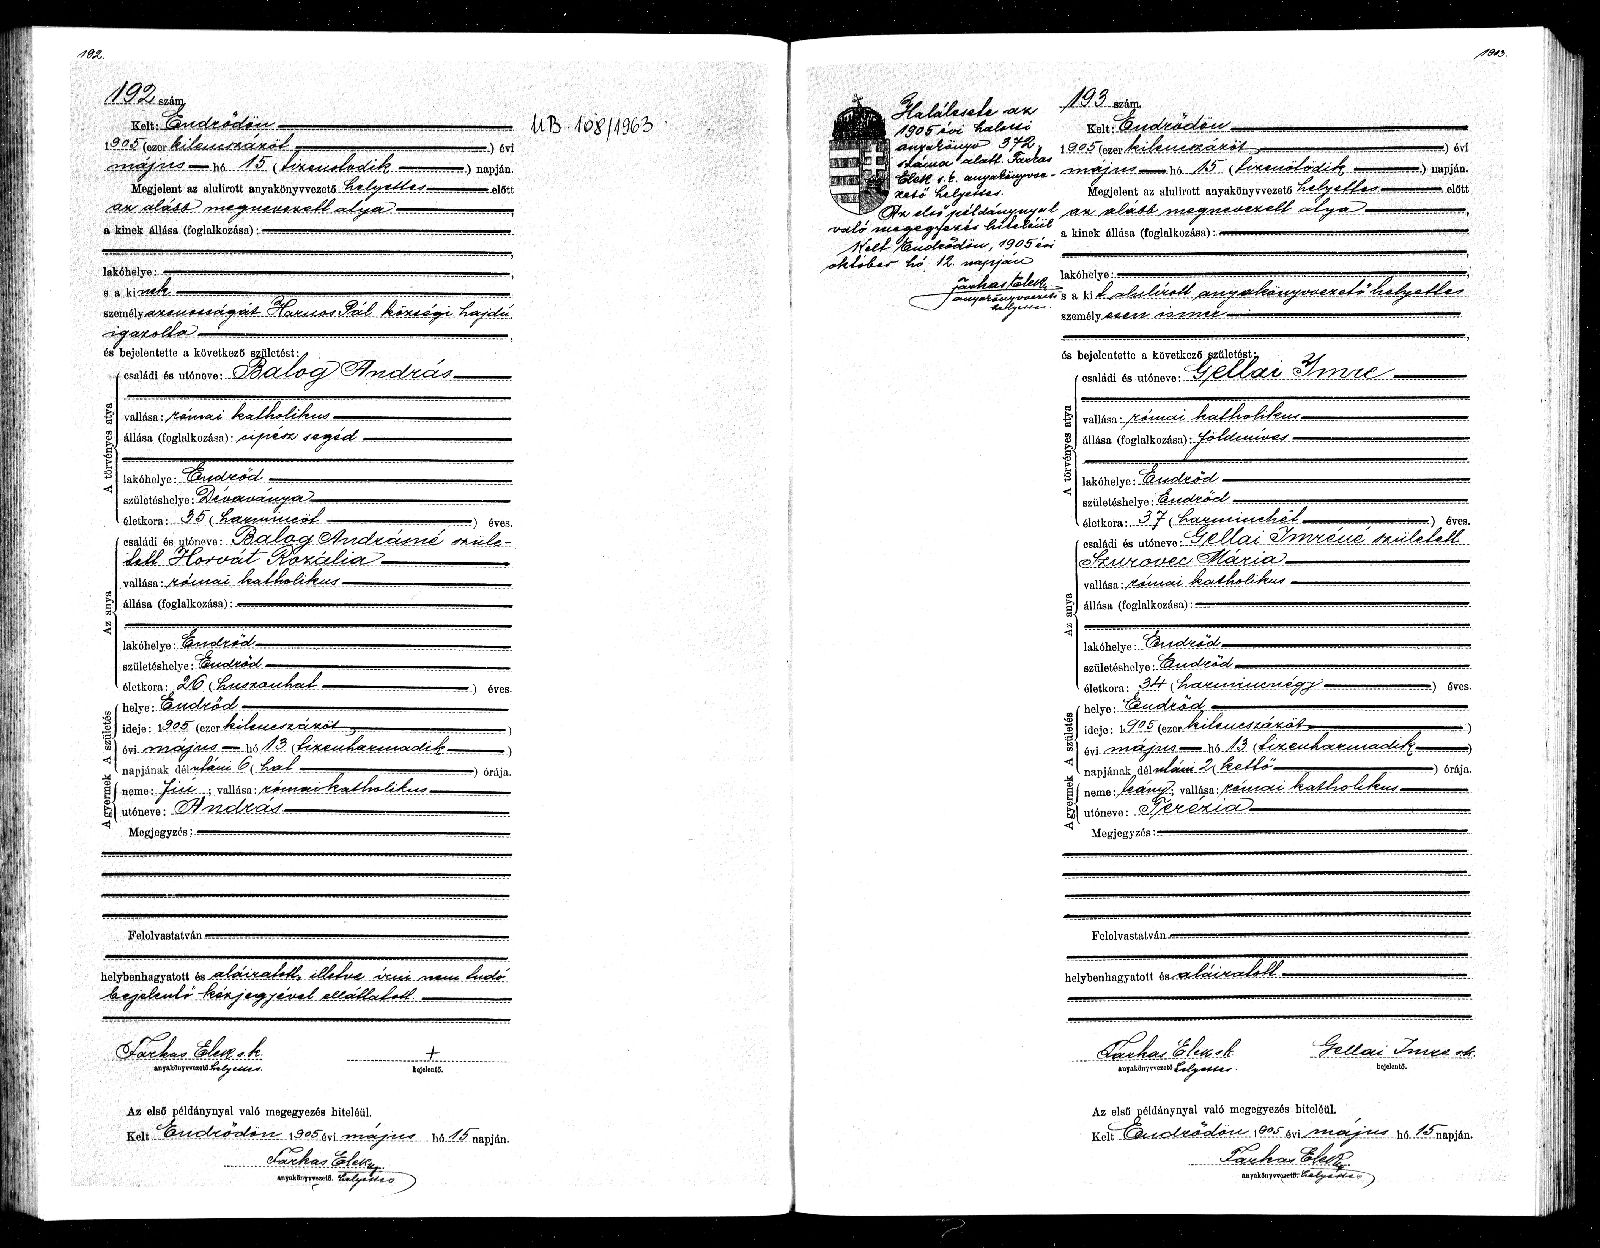 192.
192 szám
Kelt: Endrődön
UB 108/1963
1905 (ezer kilencszázöt) évi
május hó 15 (tizenötödik) napján.
Megjelent az alulirott anyakönyvvezető helyettes előtt
az alább megnevezett atya
a kinek állása (foglalkozása):
lakóhelye:
s a kinek
személyazonosságát Harnos Pál községi hajdú
igazolta
és bejelentette a következő születést:
A törvényes atya
családi és utóneve: Balog András
vallása: római katholikus
állása (foglalkozása): cipész segéd
lakóhelye: Endrőd
születéshelye: Dévaványa
életkora: 35 (harmincöt) éves.
Az anya
családi és utóneve: Balog Andrásné szüle-
tett Horvát Rozália
vallása: római katholikus
állása (foglalkozása):
lakóhelye: Endrőd
születéshelye: Endrőd
életkora: 26 (huszonhat) éves.
A születés
helye: Endrőd
ideje: 1905 (ezer kilencszázöt,)
évi május hó 13 (tizenharmadik)
napjának délutáni 6 (hat) órája.
A gyermek
neme: fiú; vallása: római katholikus
utóneve: András
Megjegyzés:
Felolvastatván
helybenhagyatott és aláiratott, illetve írni nem tudó
bejelentő kézjegyével elláttatott
Farkas Elek sk +
anyakönyvvezető helyettes. bejelentő.
Az első példánynyal való megegyezés hiteléül.
Kelt Endrődön 1905 évi május hó 15 napján.
Farkas Elek
anyakönyvvezető. helyettes
193.
Halálesete az
1905 évi halotti
anyakönyv 372
száma alatt. Farkas
Elek s.k. anyakönyvve-
zető helyettes.
Az első példánynyal
való megegyezés hiteléül
Kelt Endrődön, 1905 évi
október hó 12. napján
Farkas Elek
anyakönyvvezető
helyettes
193 szám.
Kelt: Endrődön
1905 (ezer kilencszázöt) évi
május hó 15 (tizenötödik) napján.
Megjelent az alulirott anyakönyvvezető helyettes előtt
az alább megnevezett atya
a kinek állása (foglalkozása):
lakóhelye:
s a kit alulírott anyakönyvvezető helyettes
személyesen ismer
és bejelentette a következő születést:
A törvényes atya
családi és utóneve: Gellai Imre
vallása: római katholikus
állása (foglalkozása): földmíves
lakóhelye: Endrőd
születéshelye: Endrőd
életkora: 37 (harminchét) éves.
Az anya
családi és utóneve: Gellai Imréné született
Szurovec Mária
vallása: római katholikus
állása (foglalkozása):
lakóhelye: Endrőd
születéshelye: Endrőd
életkora: 34 (harmincnégy) éves.
A születés
helye: Endrőd
ideje: 1905 (ezer kilencszázöt)
évi május hó 13 (tizenharmadik)
napjának délutáni 2 (kettő) órája.
A gyermek
neme: leány; vallása: római katholikus
utóneve: Terézia
Megjegyzés:
Felolvastatván
helybenhagyatott és aláiratott
Farkas Elek sk Gellai Imre sk.
anyakönyvvezető helyettes. bejelentő.
Az első példánynyal való megegyezés hiteléül.
Kelt Endrődön 1905 évi május hó 15 napján.
Farkas Elek
anyakönyvvezető. helyettes